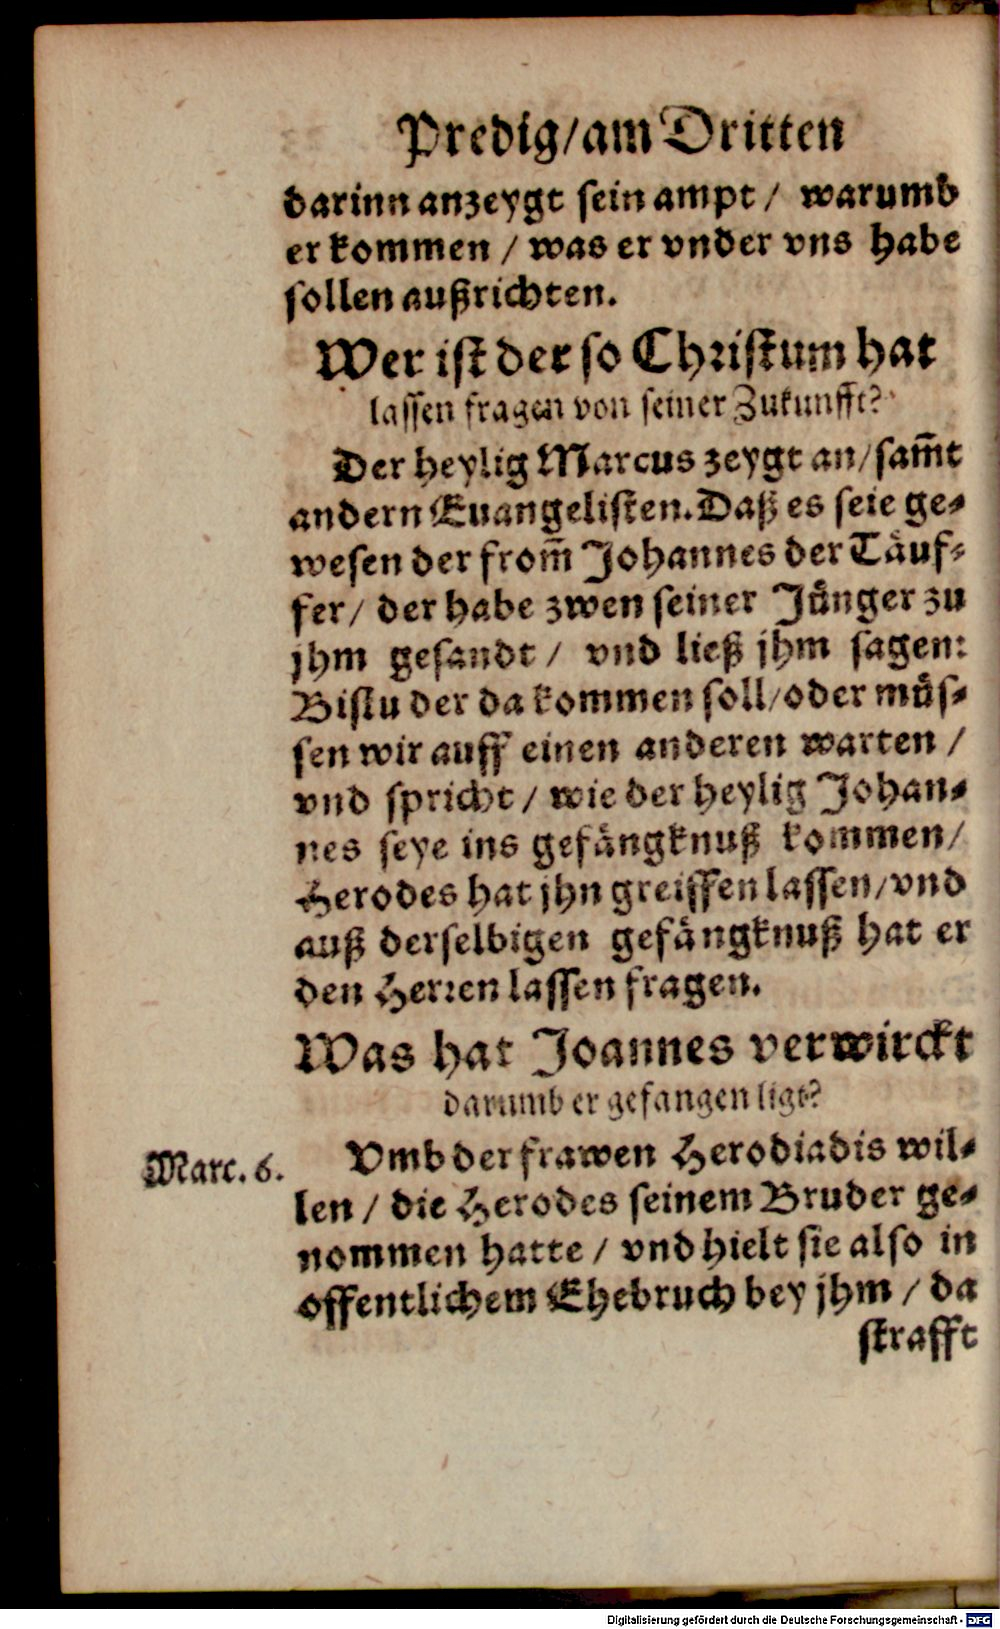 Predig/am Dritten
darinn anzeygt sein ampt / warumb
er kommen / was er vnder vns habe
sollen außrichten.
Wer ist der so Christum hat
lassen fragen von seiner Zukunfft?
Der heylig Marcus zeygt an/sam̃t
andern Euangelisten. Daß es seie ge⸗
wesen der from̃ Johannes der Taͤuf⸗
fer/ der habe zwen seiner Juͤnger zu
jhm gesandt / vnd ließ jhm sagen:
Bistu der da kommen soll/oder muͤs⸗
sen wir auff einen anderen warten /
vnd spricht / wie der heylig Johan⸗
nes seye ins gefaͤngknuß kommen/
Herodes hat jhn greiffen lassen/vnd
auß derselbigen gefaͤngknuß hat er
den Herren lassen fragen.
Was hat Joannes verwirckt
darumb er gefangen ligt?
Marc. 6.
Vmb der frawen Herodiadis wil⸗
len / die Herodes seinem Bruder ge⸗
nommen hatte / vnd hielt sie also in
offentlichem Ehebruch bey jhm / da
strafft
Digitalisierung gefördert durch die Deutsche Forschungsgemeinschaft - DFG